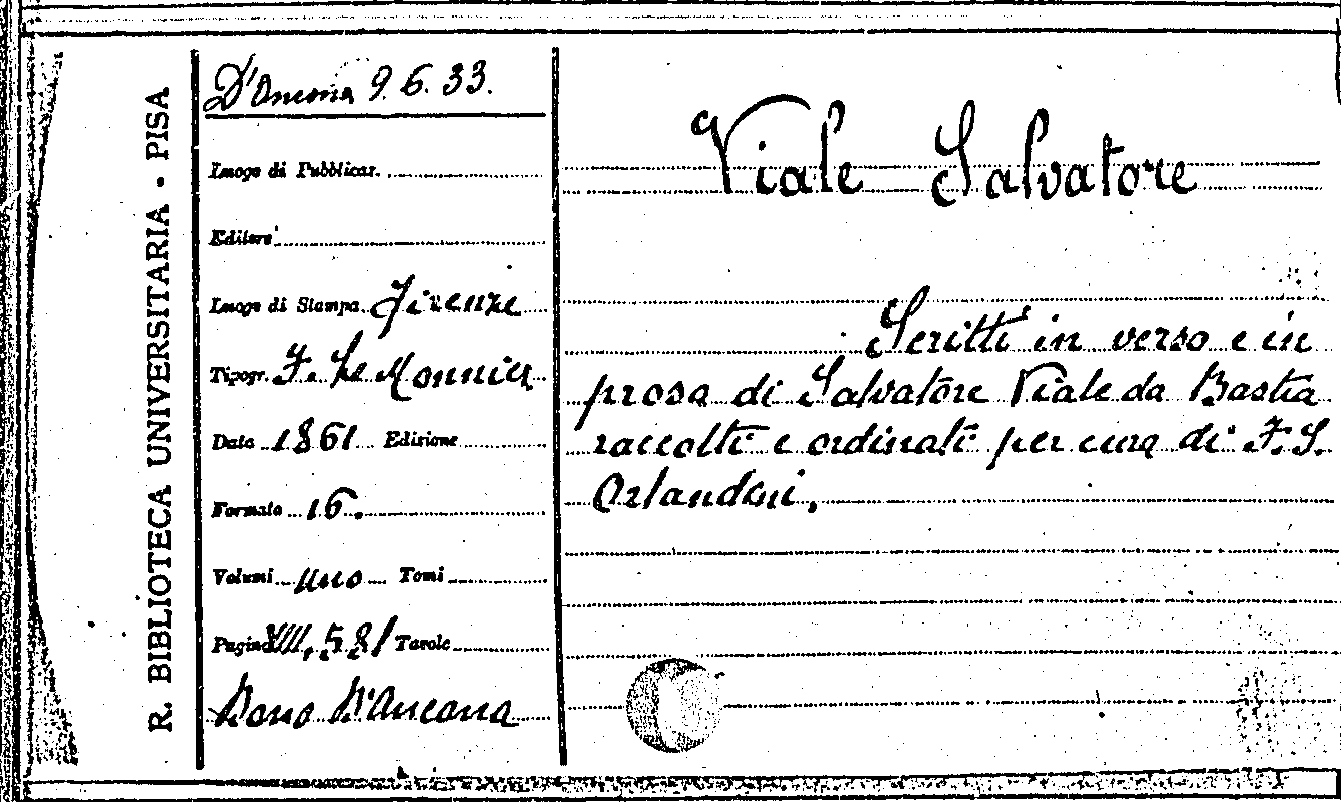 R. BIBLIOTECA UNIVERSITARIA - PISA
D'Ancona 9. 6. 33.
Luogo di Pubblicaz.
Editore
Luogo di Stampa Firenze
Tipogr. F. Le Monnier
Data 1861 Edizione
Formato 16.
Volumi uno Tomi
Pagine VIII, 581 Tavole
Dono D'Ancona
Viale Salvatore
Scritti in verso e in
prosa di Salvatore Viale da Bastia
raccolti e ordinati per cura di F. S.
Orlandini.